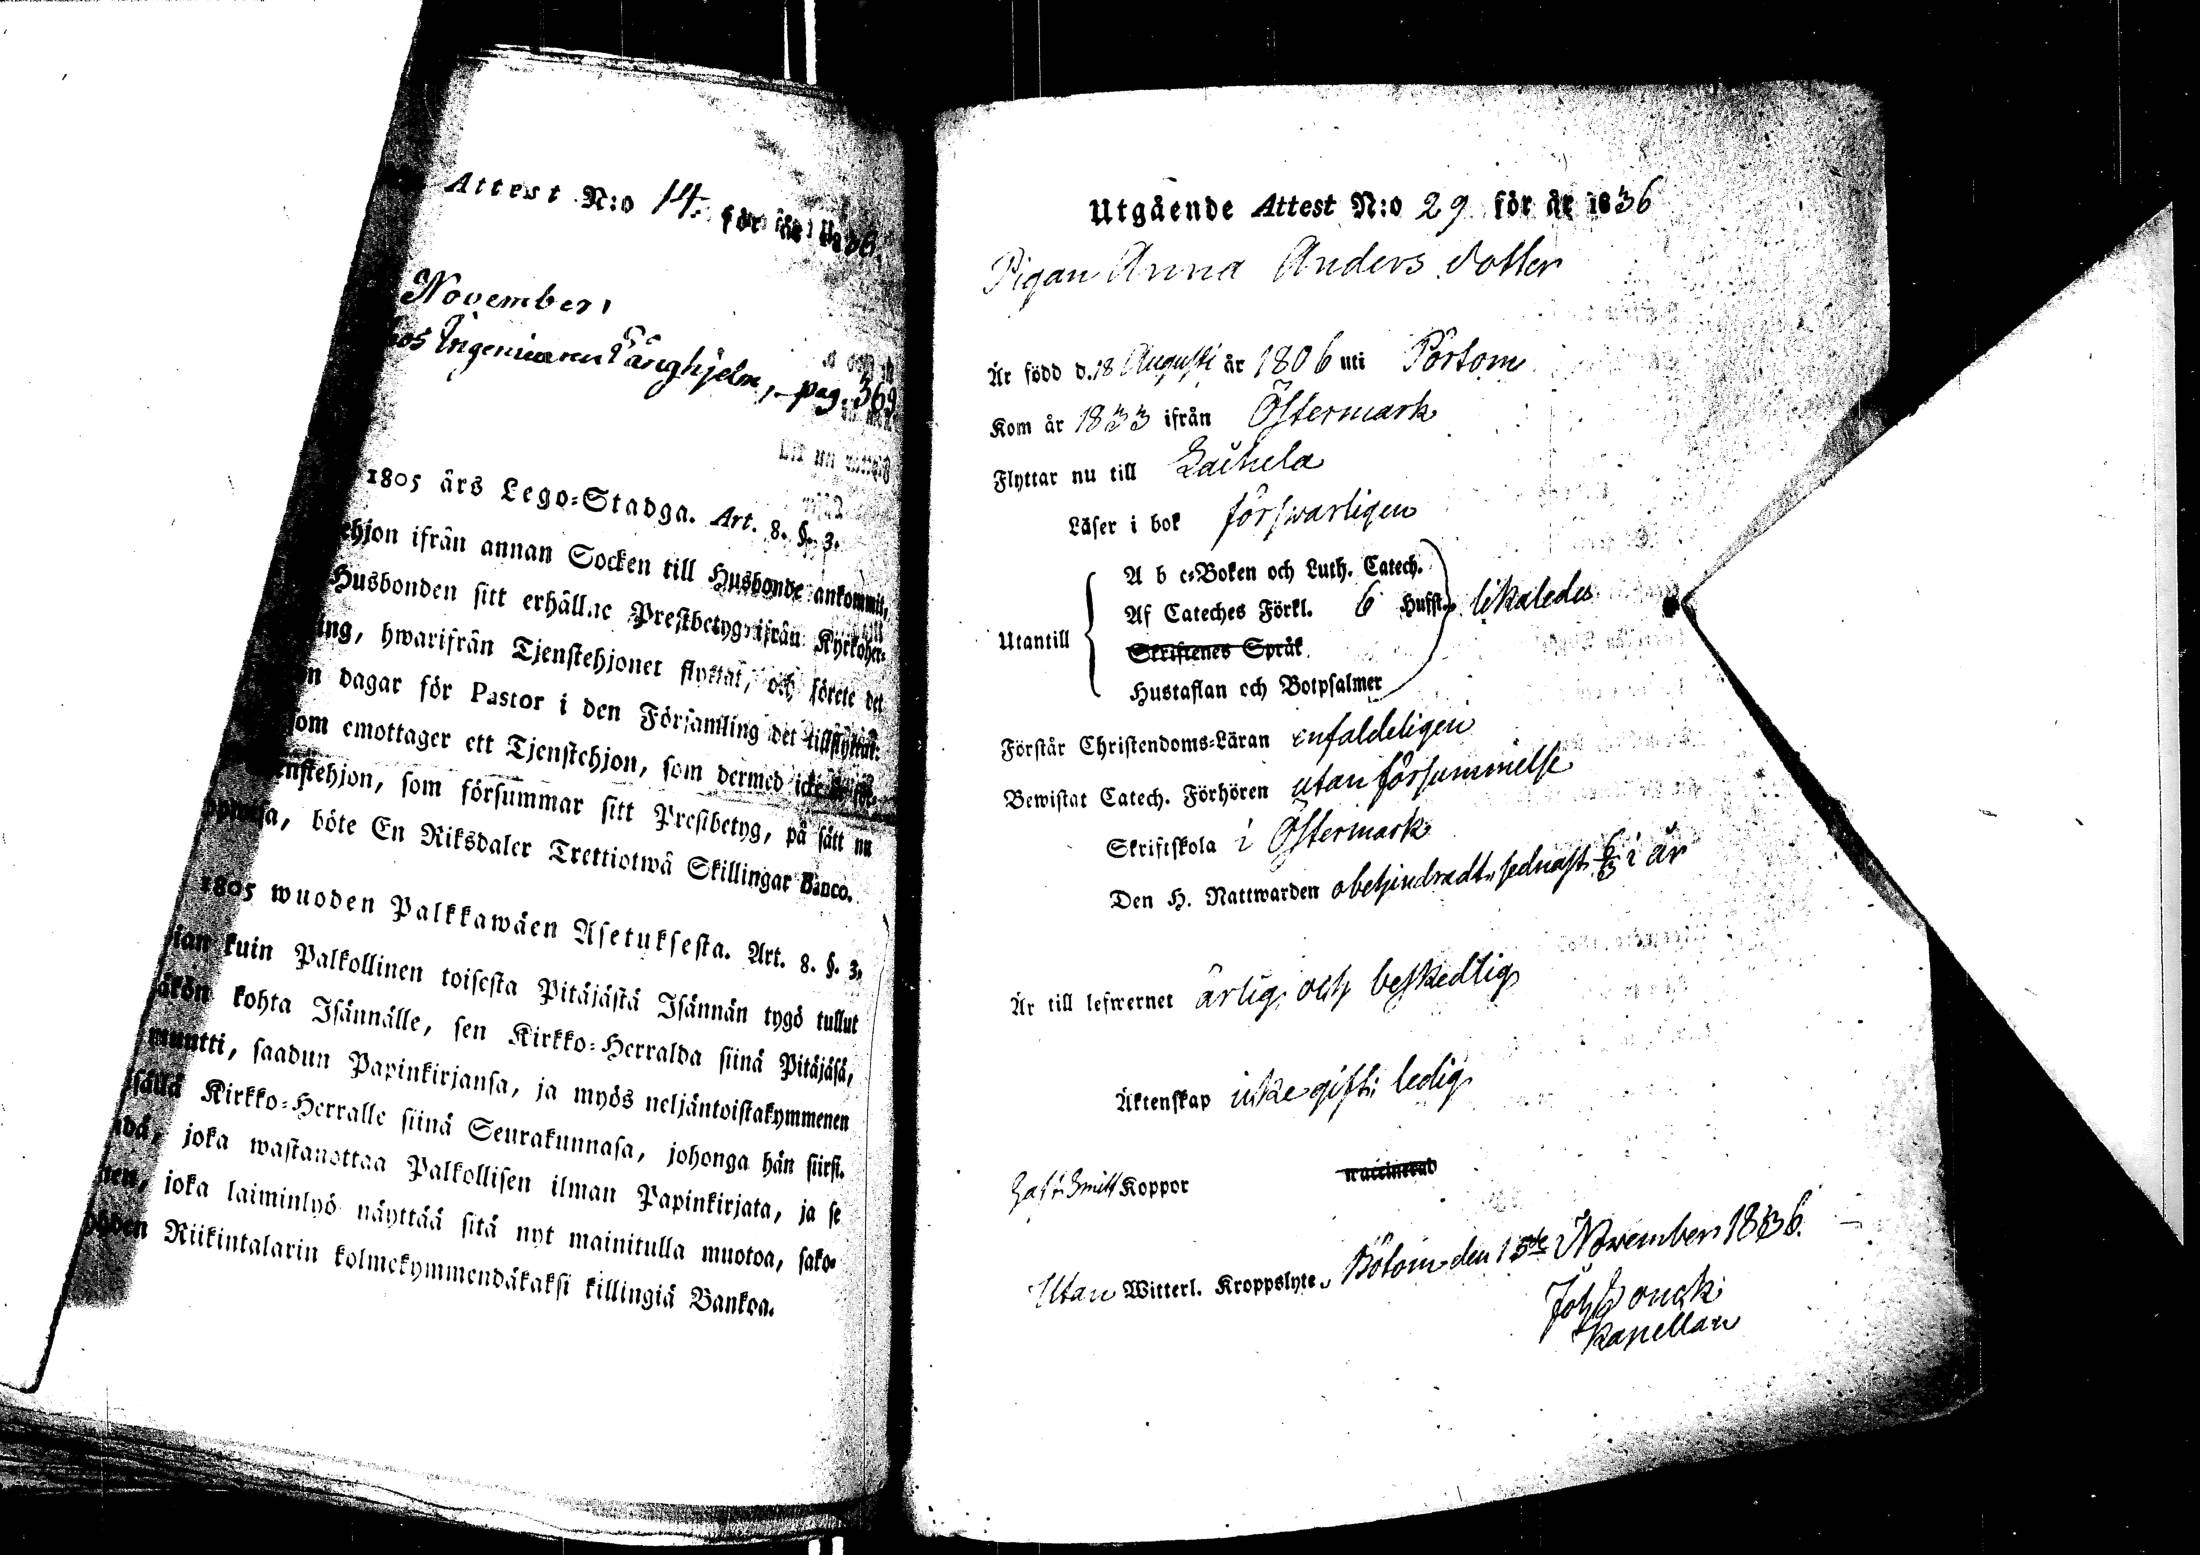 Attest N:o 14. för år 1836.
November,
hos Ingenieuren Långhjelm, pag. 369
1805 års Lego=Stadga. Art. 8. §. 3.
ehjon ifrån annan Socken till Husbonde ankommit,
Husbonden sitt erhållne Prestbetyg ifrån Kyrkoher=
ing, hwarifrån Tjenstehjonet flyttat, och förete det
n dagar för Pastor i den Församling det tillflyttat.
om emottager ett Tjenstehjon, som dermed icke är för=
enstehjon, som försummar sitt Prestbetyg, på sätt nu
böte En Riksdaler Trettiotwå Skillingar Banco.
1805 wuoden Palkkawäen Asetuksesta. Art. 8. §. 3.
kuin Palkollinen toisesta Pitäjästä Isännän tygö tullut
kohta Isännälle, sen Kirkko=Herralda siinä Pitäjäsä,
muutti, saadun Papinkirjansa, ja myös neljäntoistakymmenen
Kirkko=Herralle siinä Seurakunnasa, johonga hän siirsi.
joka wastanottaa Palkollisen ilman Papinkirjata, ja se
nen, joka laiminlyö näyttää sitä nyt mainitulla muotoa, sako=
Riikintalarin kolmekymmendäkaksi killingiä Bankoa.
Utgående Attest N:o 29 för år 1836
Pigan Anna Anders dotter
Är född d. 18 Augusti år 1806 uti Pörtom
Kom år 1833 ifrån Östermark
Flyttar nu till Laihela
Läser i bok förswarligen
Utantill
A b c=Boken och Luth. Catech.
Af Cateches Förkl. 6 Hufst. likaledes
Skriftenes Språk
Hustaflan och Botpsalmer
Förstår Christendoms=Läran enfaldeligen
Bewistat Catech. Förhören utan försummelse
Skriftskola i Östermark
Den H. Nattwarden obehindradt, sednast i år
Är till lefwernet ärlig och beskedlig
Äktenskap icke gift; ledig
Haft Smitt Koppor waccinerad
Utan Witterl. Kroppslyte. Bötom den 15de November 1836.
Joh
Kapellan